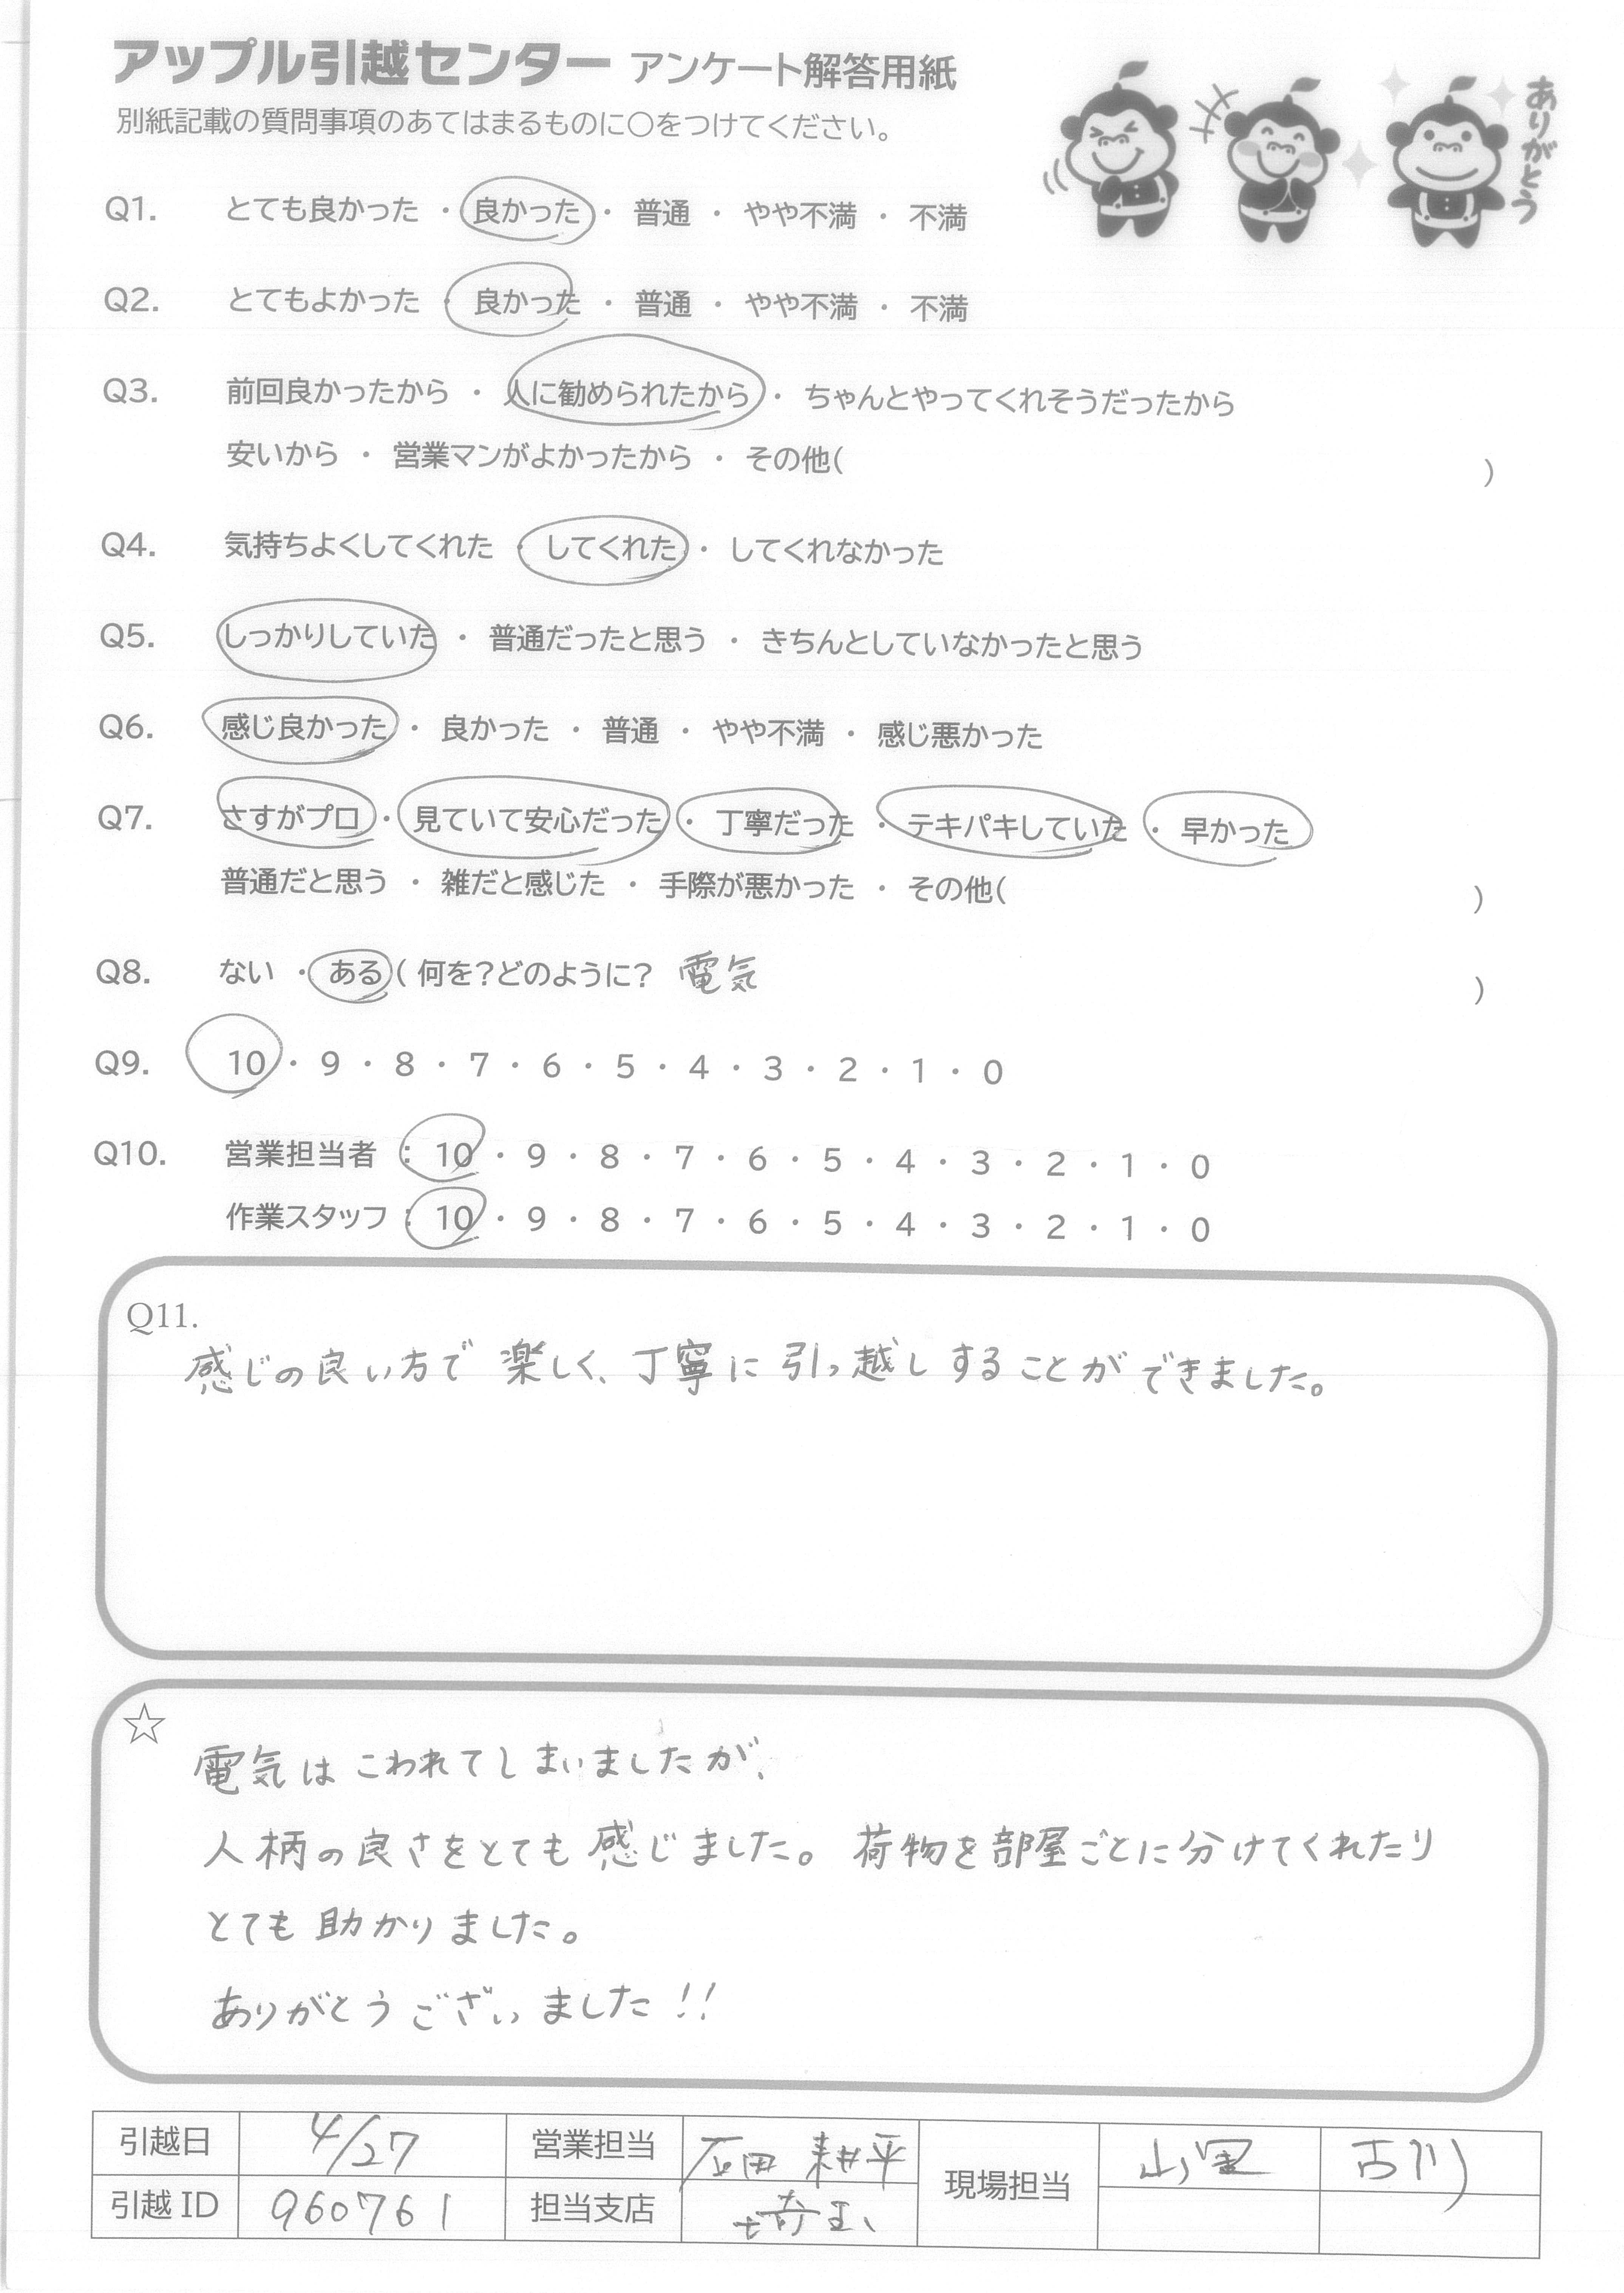 アップル引越センター アンケート解答用紙
別紙記載の質問事項のあてはまるものに○をつけてください。
ありがとう
Q1. とても良かった ・ 良かった ・ 普通 ・ やや不満 ・ 不満
Q2. とてもよかった ・ 良かった ・ 普通 ・ やや不満 ・ 不満
Q3. 前回良かったから ・ 人に勧められたから ・ ちゃんとやってくれそうだったから
安いから ・ 営業マンがよかったから ・ その他( )
Q4. 気持ちよくしてくれた ・ してくれた ・ してくれなかった
Q5. しっかりしていた ・ 普通だったと思う ・ きちんとしていなかったと思う
Q6. 感じ良かった ・ 良かった ・ 普通 ・ やや不満 ・ 感じ悪かった
Q7. さすがプロ ・ 見ていて安心だった ・ 丁寧だった ・ テキパキしていた ・ 早かった
普通だと思う ・ 雑だと感じた ・ 手際が悪かった ・ その他( )
Q8. ない ・ ある ( 何を？どのように？ 電気 )
Q9. 10 ・ 9 ・ 8 ・ 7 ・ 6 ・ 5 ・ 4 ・ 3 ・ 2 ・ 1 ・ 0
Q10. 営業担当者 : 10 ・ 9 ・ 8 ・ 7 ・ 6 ・ 5 ・ 4 ・ 3 ・ 2 ・ 1 ・ 0
作業スタッフ : 10 ・ 9 ・ 8 ・ 7 ・ 6 ・ 5 ・ 4 ・ 3 ・ 2 ・ 1 ・ 0
Q11.
感じの良い方で 楽しく、丁寧に 引っ越しすることができました。
☆
電気は こわれてしまいましたが、
人柄の良さをとても感じました。荷物を部屋ごとに分けてくれたり
とても助かりました。
ありがとうございました!!
引越日 4/27 営業担当 石田 耕平 現場担当 古川
引越ID 960761 担当支店 埼玉